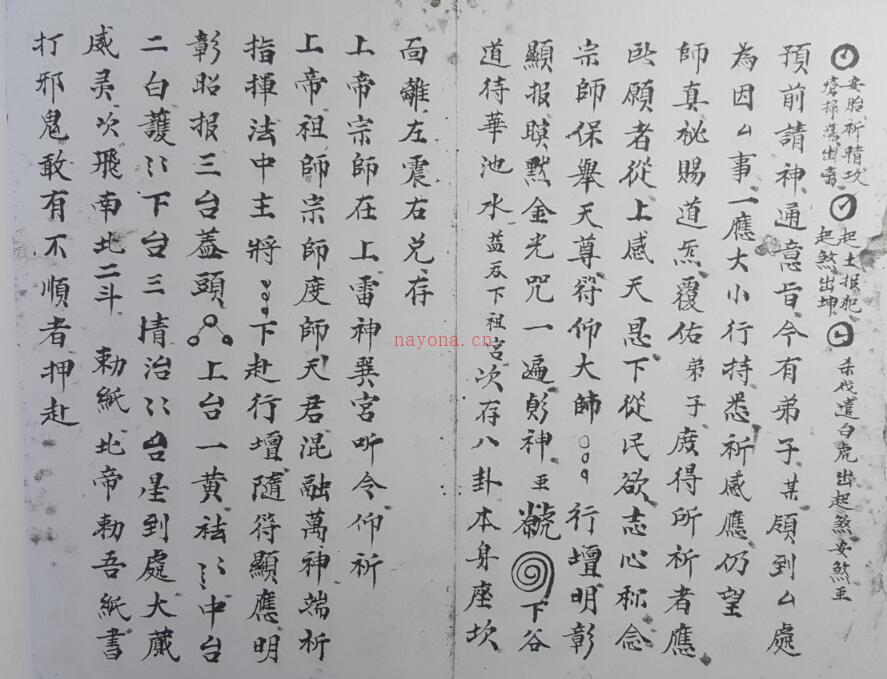 安胎祈晴
起土报犯
起煞出坤
杀伐遣白虎出起煞安煞
預前請神通意旨今有弟子某領到厶處
為因厶事一應大小行持悉祈感應仍望
師真祕賜道炁覆佑弟子庻得所祈者應
所願者從上感天恩下從民欲志心称念
宗師保舉天尊符仰大師行壇明彰
顯报瞋黙金光咒一遍神下谷
道待華池水益吞下祖宮次存八卦本身座坎
面離左震右兑存
上帝宗師在上雷神巽宮听令仰祈
上帝祖師宗師度師天君混融萬神端祈
指揮法中主將下赴行壇隨符顯應明
彰昭报三台盖頭上台一黄祛〻中台
二白護〻下台三情治〻台星到處大蕆
威灵次飛南北二斗勅紙北帝勅吾紙書
打邪鬼敢有不順者押赴
nayona.cn